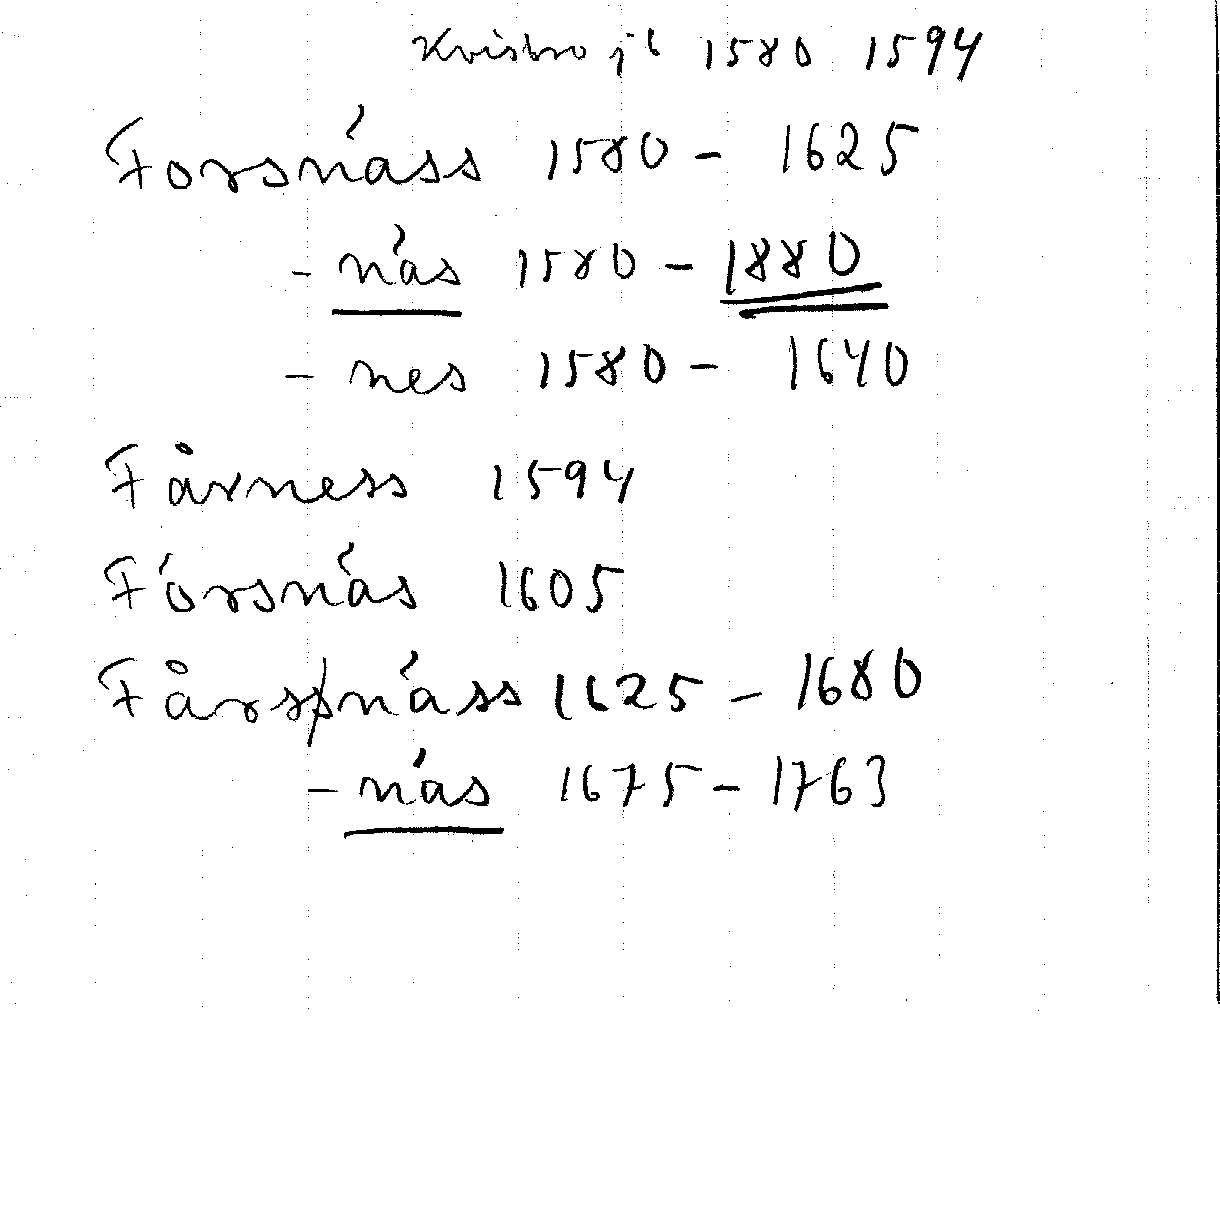 Kvistro jb 1580 1594
Forsnäss 1580 - 1625
- näs 1580 - 1880
- nes 1580 - 1640
Fårness 1594
Försnäs 1605
Fårsnäss 1625 - 1680
- näs 1675 - 1763